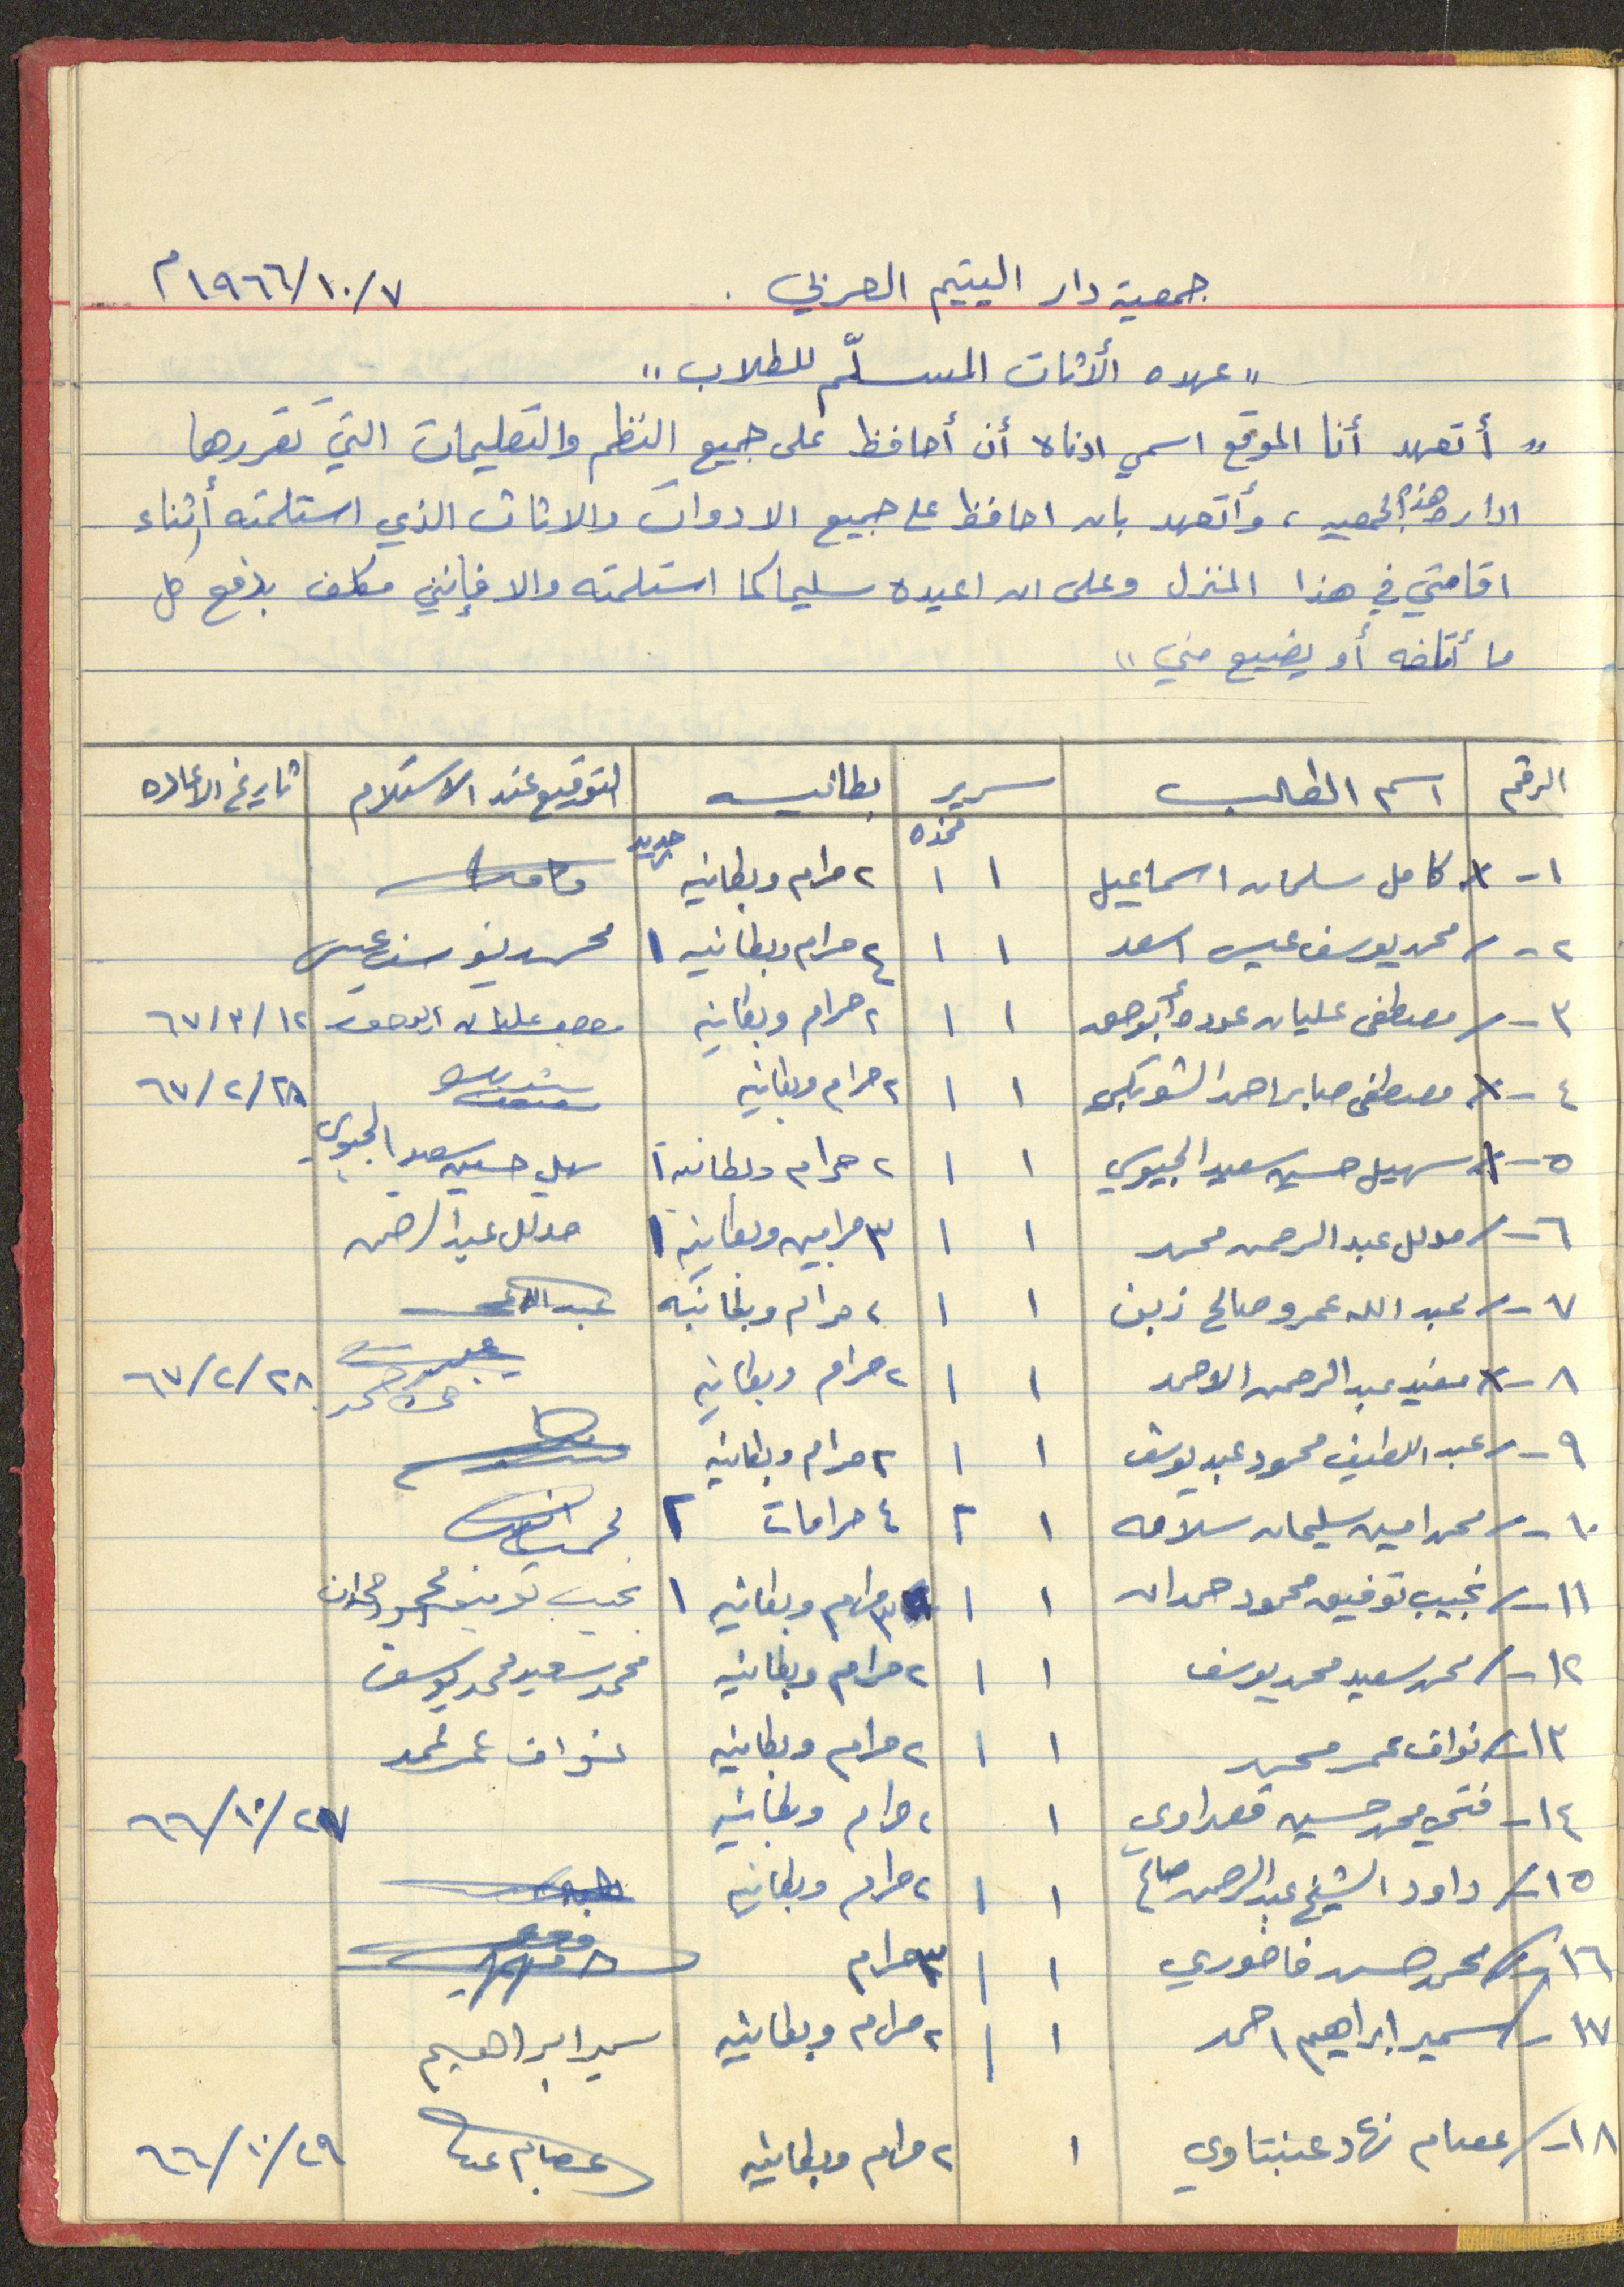 جمعية دار اليتيم العربي . ١٩٦٦/١٠/٧م
"عهده الأثاث المسلّم للطلاب"
"أتعهد أنا الموقع اسمي ادناه أن أحافظ على جميع النظم والتعليمات التي تقررها
اداره هذه الجمعيه ، وأتعهد بان احافظ على جميع الادوات والاثاث الذي استلمته أثناء
اقامتي في هذا المنزل وعلى ان اعيده سليما كما استلمته والا فإنني مكلف بدفع كل
ما أتلفه أو يضيع مني"
الرقم اسم الطالب سرير مخده بطانيه التوقيع عند الاستلام تاريخ الاعاده
١- كامل سلمان اسماعيل ١ ١ ٢ حرام وبطانيه جديد كامل
٢- محمد يوسف عيسى اسعد ١ ١ ٤ حرام وبطانيه ١ محمد يوسف عيسى
٣- مصطفى عليان عوده أبو ١ ١ ٢ حرام وبطانيه مصطفى عليان ٦٧/٣/١٢
٤- مصطفى صابر احمد الشوبكي ١ ١ ٢ حرام وبطانيه ٦٧/٢/٢٨
٥- سهيل حسين سعيد الجيوسي ١ ١ ٢ حرام وبطانيه ١ سهيل حسين سعيد الجيوسي
٦- مدلل عبد الرحمن محمد ١ ١ ٣ حرامين وبطانيه ١ مدلل عبد الرحمن
٧- عبد الله عمرو صالح زين ١ ١ ٢ حرام وبطانيه عبد الله
٨- مفيد عبد الرحمن الاحمد ١ ١ ٢ حرام وبطانيه ٦٧/٢/٢٨
٩- عبد اللطيف محمود عبد يوسف ١ ١ ٢ حرام وبطانيه
١٠- محمد امين سليمان سلامه ١ ٢ ٤ حرامات ٢
١١- نجيب توفيق محمود حمدان ١ ١ ٣ حرام وبطانيه ١ نجيب توفيق محمود حمدان
١٢- محمد سعيد محمد يوسف ١ ١ ٢ حرام وبطانيه محمد سعيد محمد يوسف
١٣- نواف عمر محمد ١ ١ ٢ حرام وبطانيه نواف عمر محمد
١٤- فتحي محمد حسين قعداوي ١ ٢ حرام وبطانيه ٦٦/١٠/٢٧
١٥- داود الشيخ عبد الرحمن صالح ١ ١ ٢ حرام وبطانيه
١٦- محمد حسن فاخوري ١ ١ ٣ حرام
١٧- سمير ابراهيم احمد ١ ١ ٢ حرام وبطانيه سمير ابراهيم
١٨- عصام نهاد عنبتاوي ١ ٢ حرام وبطانيه عصام ٦٦/١٠/٢٩